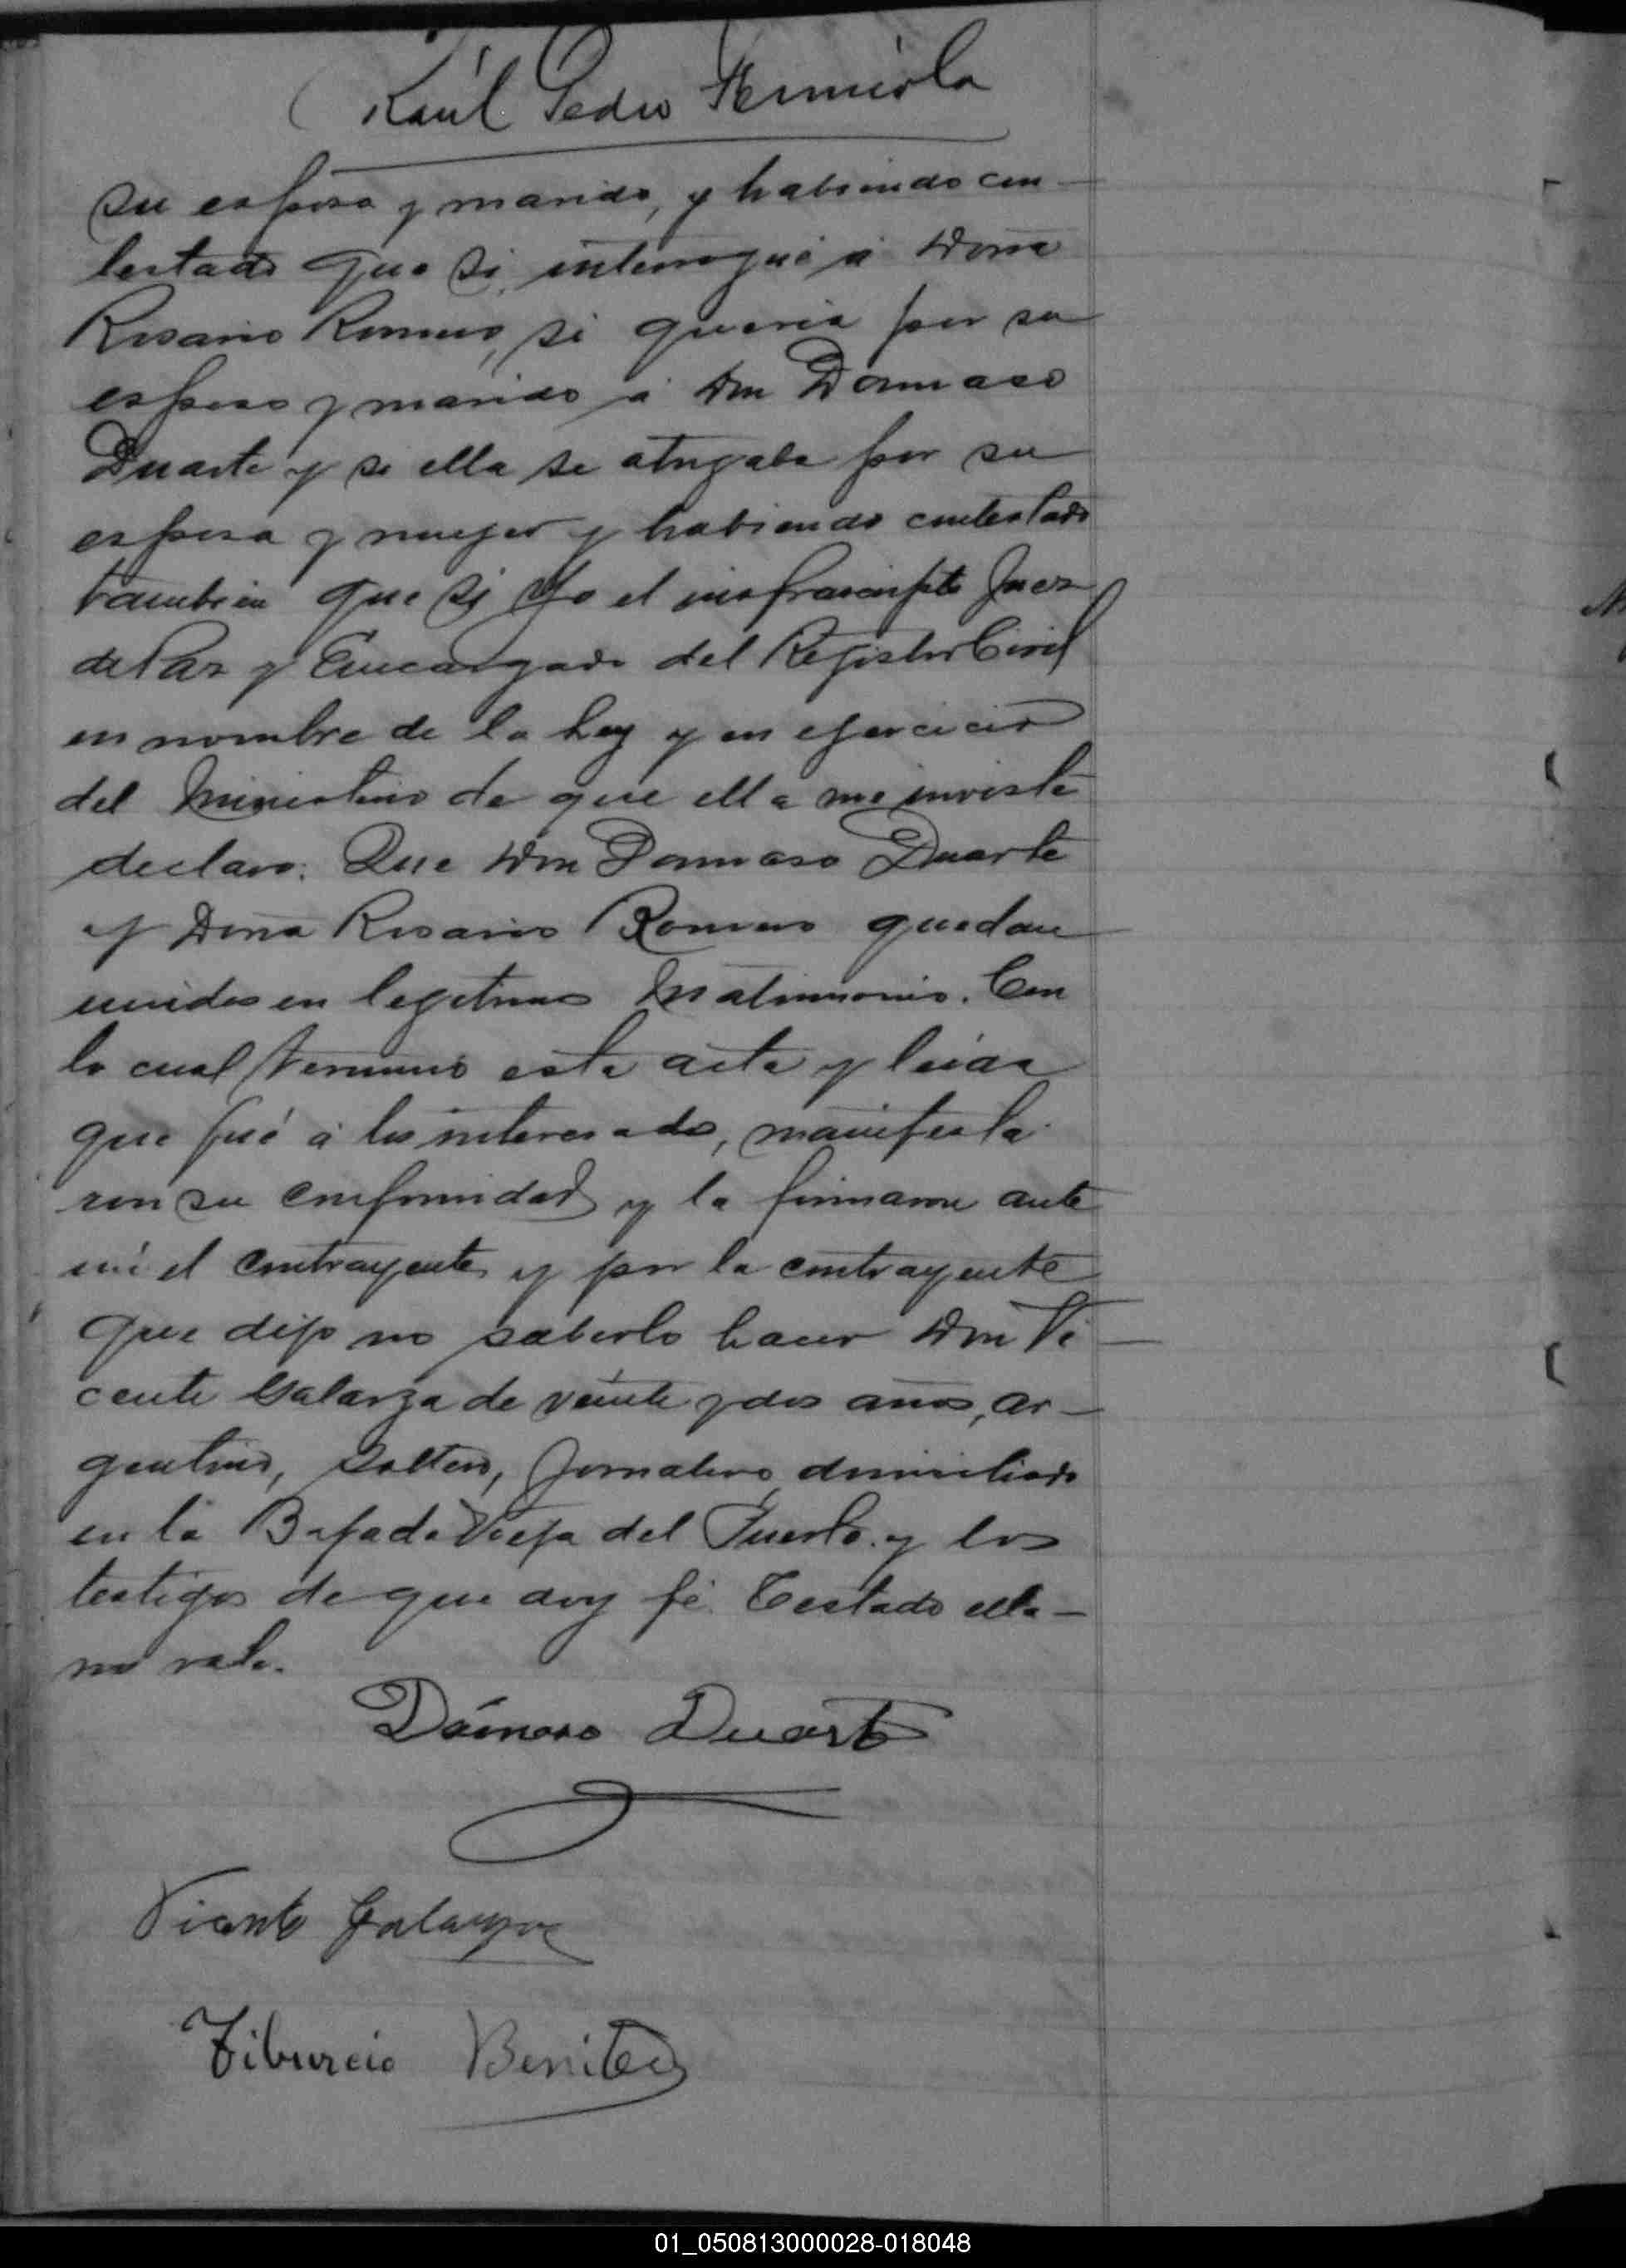 Raúl Pedro
su esposo y marido, y habiendo con-
testado que si, interrogué á Doña
Rosario Romero, si queria por su
esposo y marido á Don Damaso
Duarte y si ella se otrgaba por su
esposa y mujer y habiendo contestado
tambien que si Yo el infrascripto Juez
de Paz y Encargado del Registro Civil
en nombre de la Ley y en ejercicio
del Ministerio de que ella me inviste
declaro: Que Don Damaso Duarte
y Doña Rosario Romero quedan
unidos en legitimo Matrimonio. Con
lo cual terminó esta acta y leida
que fué á los interesados, manifesta-
ron su conformidad y la firmaron ante
mi el contrayente y por la contrayente
que dijo no saberlo hacer Don Vi-
cente Galarza de veinte y dos años, ar-
gentino, soltero, jornalero, domiciliado
en la Bajada Vieja del Puerto. y los
testigos de que doy fé. Testado ella-
no vale.
Dámaso Duarte
Vicente Galarza
Tiburcio Benitez
01_050813000028-018048